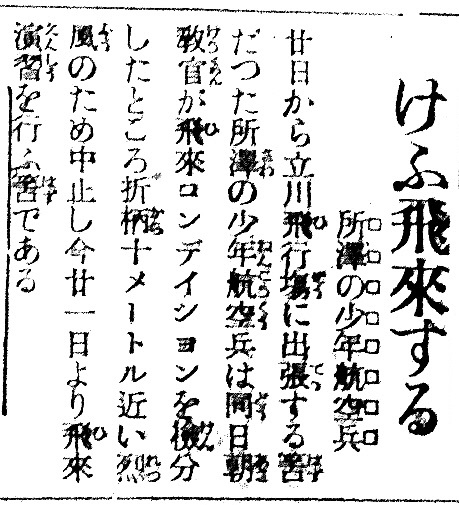 けふ飛來する
所澤の少年航空兵
廿日から立川飛行塲に出張する筈
だつた所澤の少年航空兵は同日朝
敎官が飛來コンデイションを檢分
したところ折柄十メートル近い烈
風のため中止し今廿一日より飛來
演習を行ふ筈である